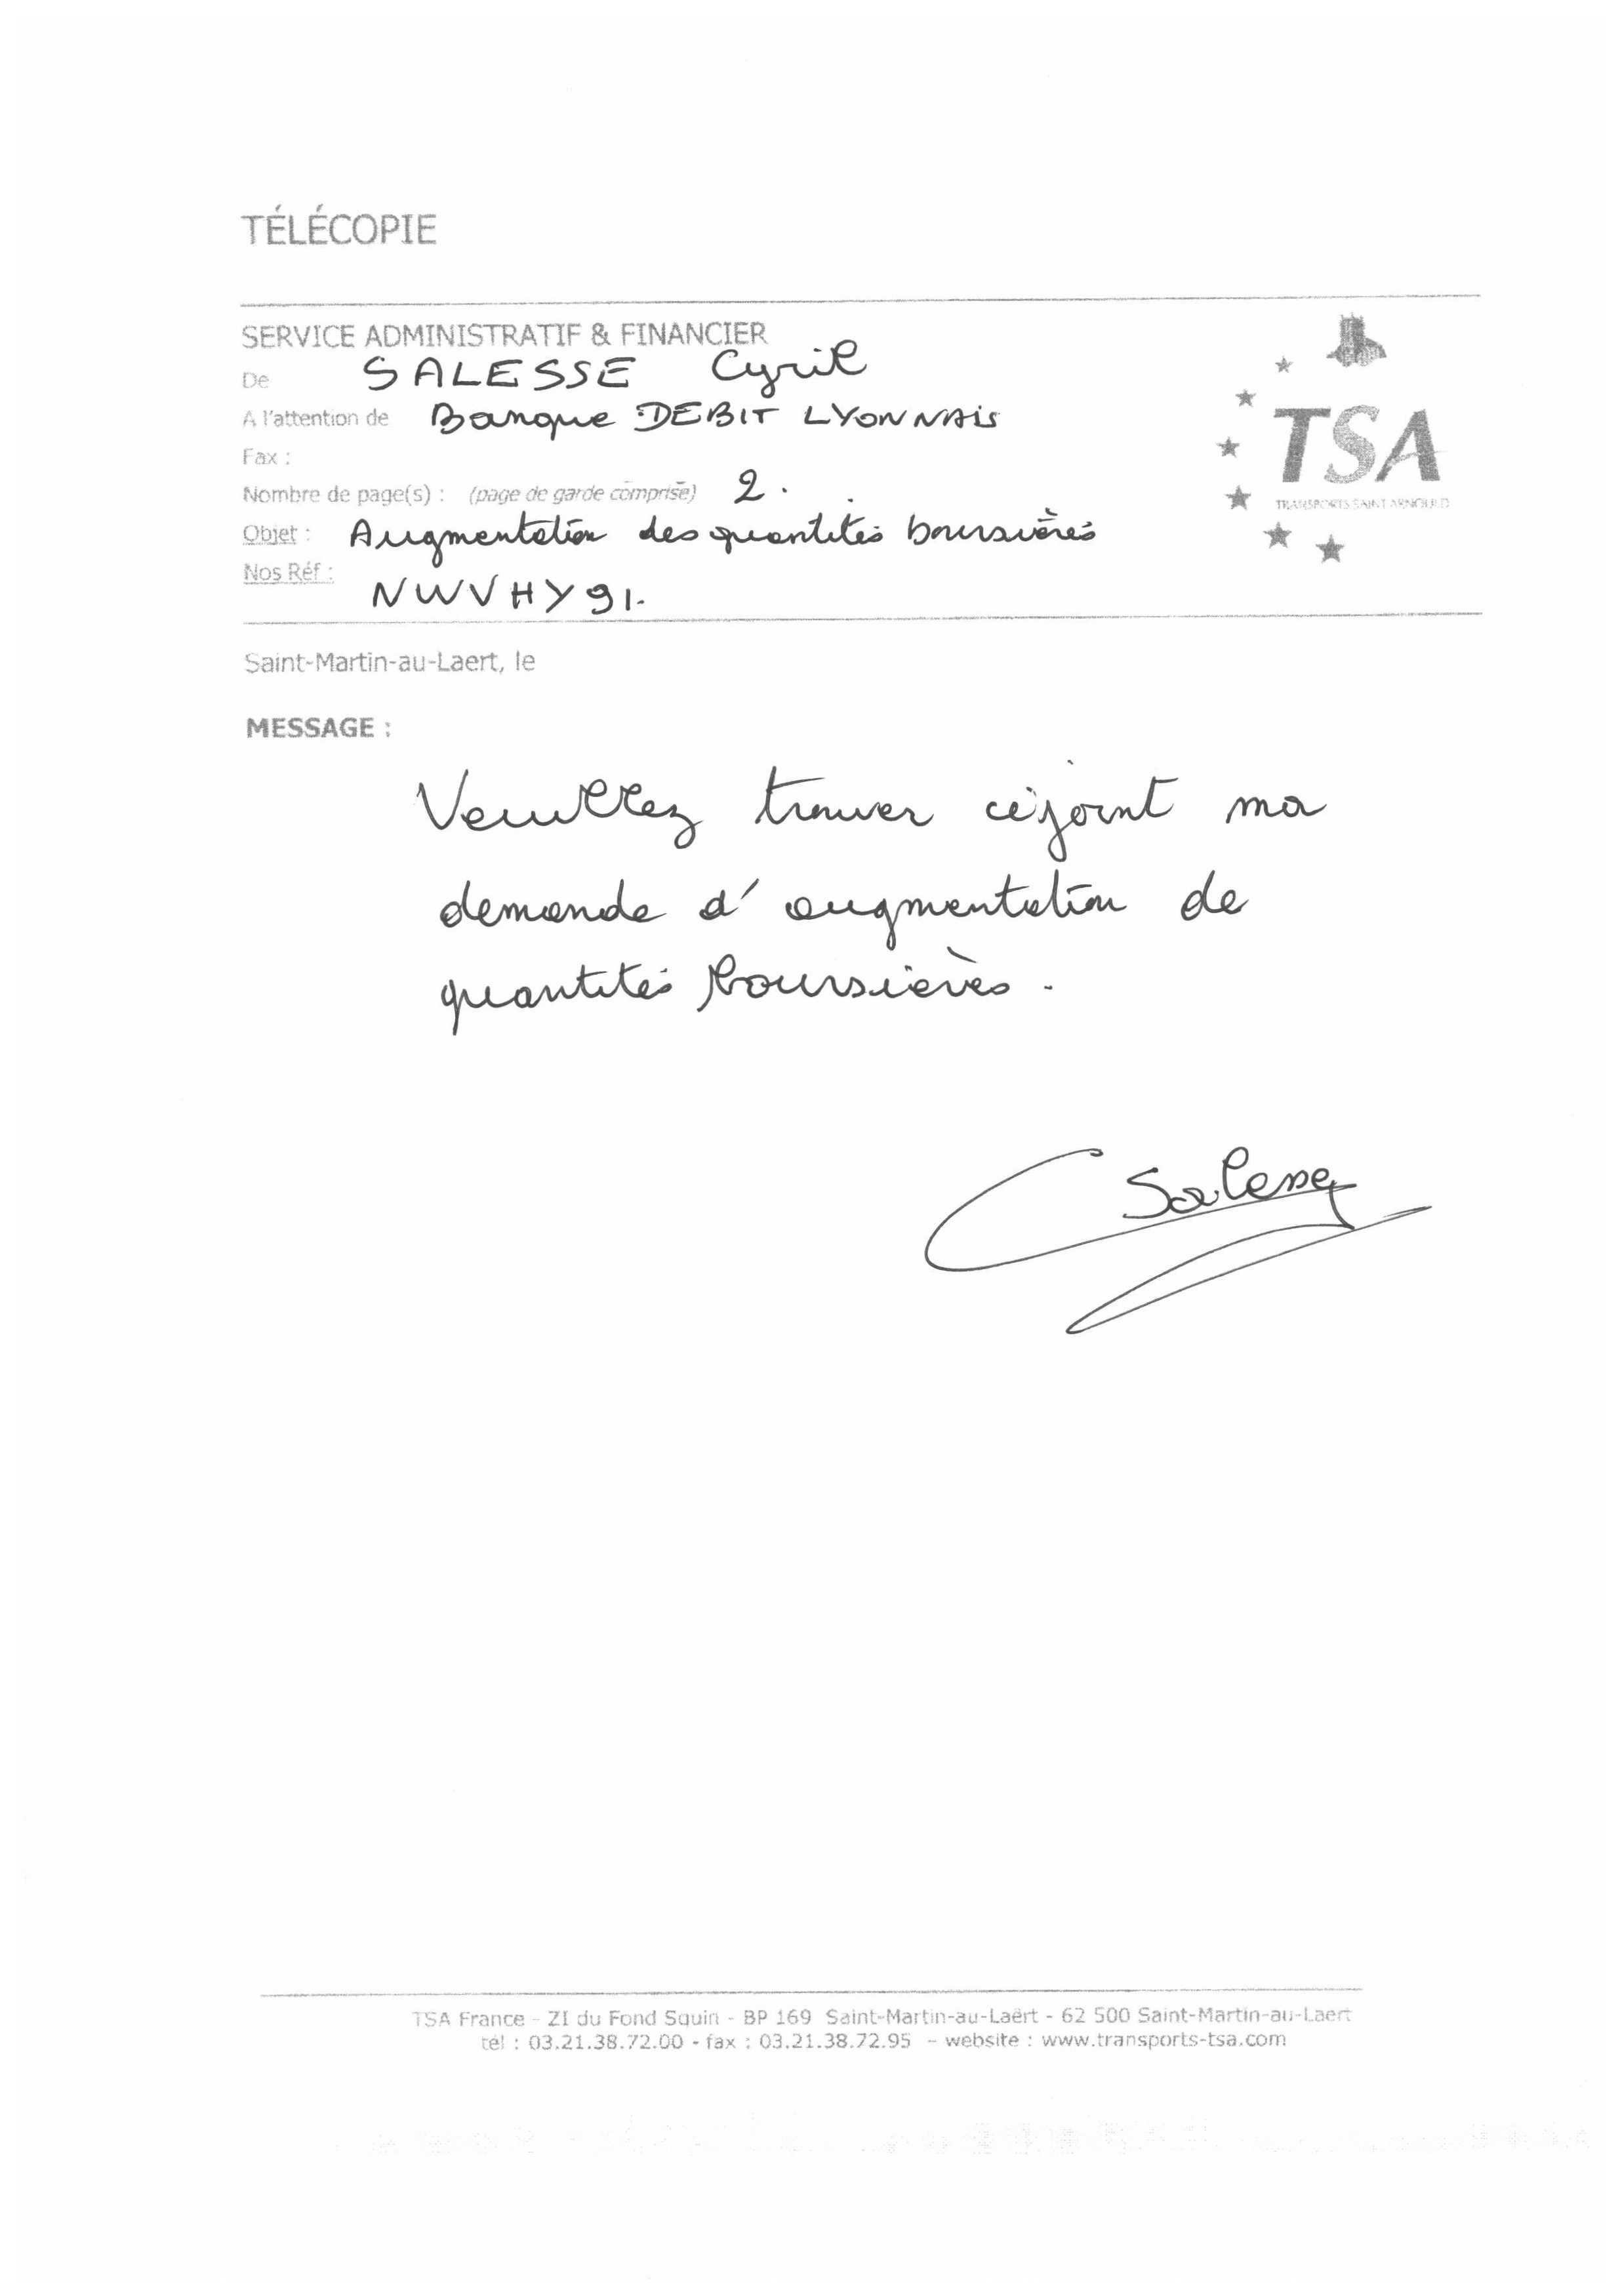 TÉLÉCOPIE
SERVICE ADMINISTRATIF & FINANCIER
De SALESSE Cyril
A l'attention de Banque DEBIT LYONNAIS
Fax :
Nombre de page(s) : (page de garde comprise) 2.
Objet : Augmentation des quantités boursières
Nos Réf : NWVHY91.
TSA
TRANSPORTS SAINT ARNOULD
Saint-Martin-au-Laert, le
MESSAGE :
Veuillez trouver ci joint ma
demande d'augmentation de
quantités boursières.
C Salesse
TSA France - ZI du Fond Squin - BP 169 Saint-Martin-au-Laërt - 62 500 Saint-Martin-au-Laert
tél : 03.21.38.72.00 - fax : 03.21.38.72.95 - website : www.transports-tsa.com